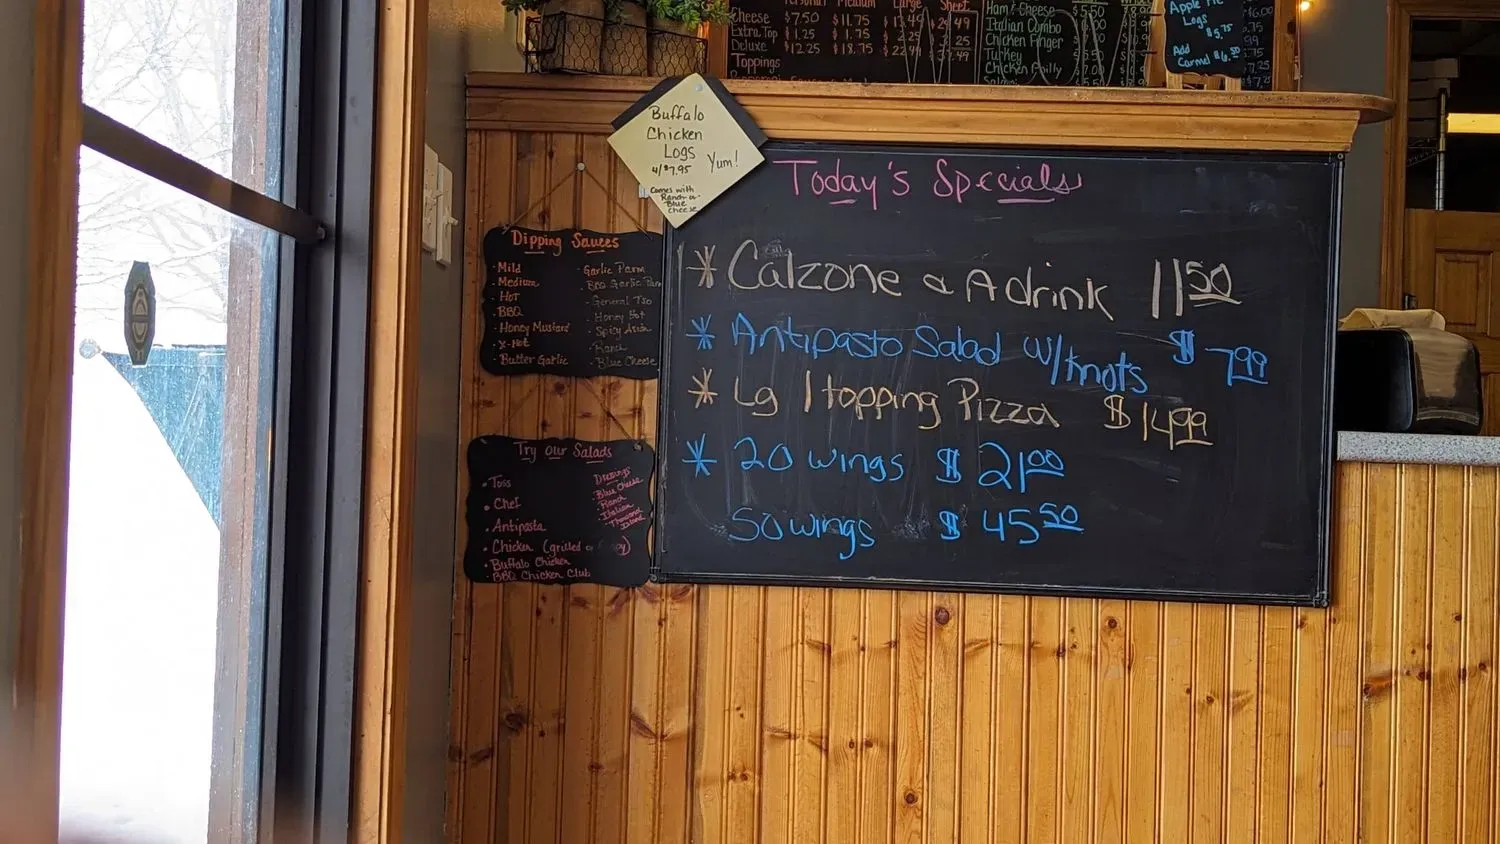 Personal Medium Large Sheet
Cheese $7.50 $11.75
Extra Top $1.25 $1.75
Deluxe $12.25 $18.75
Toppings
Ham/Cheese $5.50
Italian Combo
Chicken Finger
Turkey
Chicken Philly
Apple Pie
Logs
$5.75
Add
Carmel
Buffalo
Chicken
Logs
4/$7.95
Yum!
Comes with
Ranch or
Blue
Cheese
Today's Specials
* Calzone & A drink 11 50
* Antipasto Salad w/knots $7 99
* Lg 1 topping Pizza $14 99
* 20 wings $21 00
50 wings $45 50
Dipping Sauces
• Mild
• Medium
• Hot
• BBQ
• Honey Mustard
• X-Hot
• Butter Garlic
• Garlic Parm
• BBQ Garlic Parm
• General Tso
• Honey Hot
• Spicy Asian
• Ranch
• Blue Cheese
Try Our Salads
• Toss
• Chef
• Antipasta
• Chicken (grilled or
• Buffalo Chicken
• BBQ Chicken Club
Dressings
• Blue Cheese
• Ranch
• Italian
• Thousand
Island